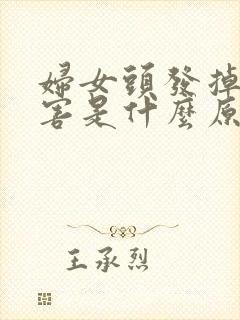 婦女頭發掉
害是什麼原
王承烈